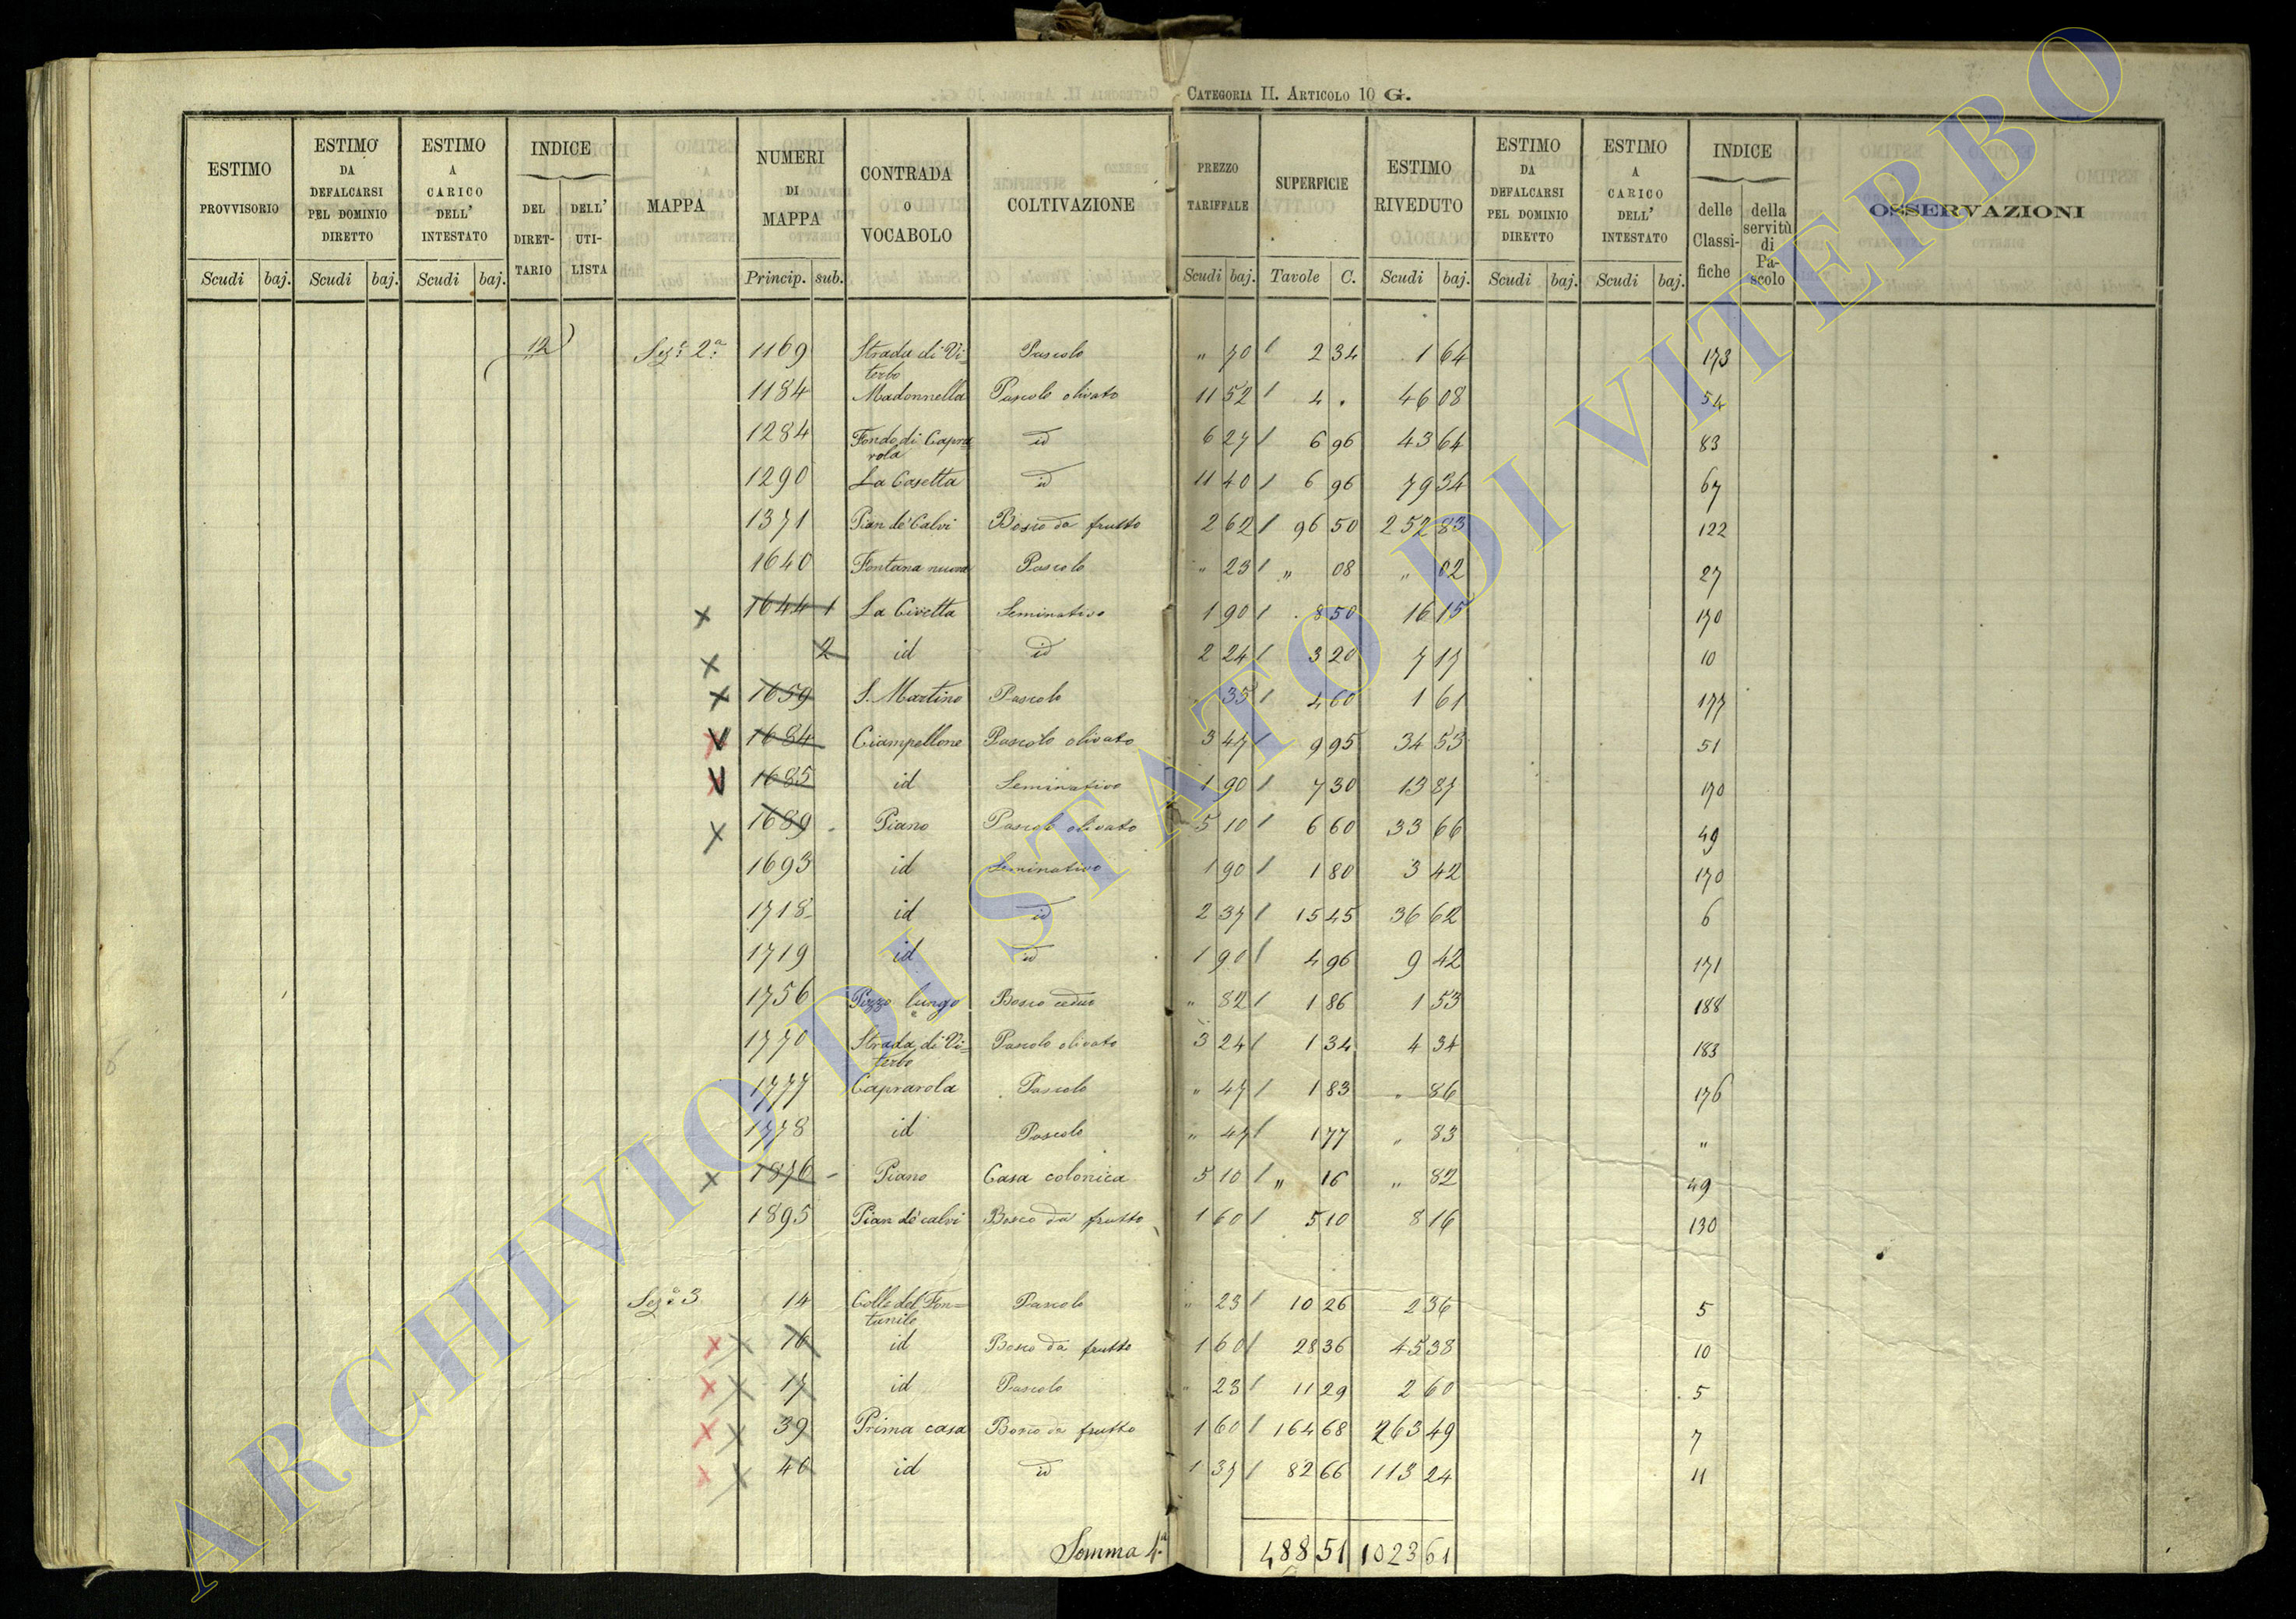 CATEGORIA II. ARTICOLO 10 G.
ESTIMO PROVVISORIO Scudi baj.
ESTIMO DA DEFALCARSI PEL DOMINIO DIRETTO Scudi baj.
ESTIMO A CARICO DELL' INTESTATO Scudi baj.
INDICE DEL DIRET-TARIO DELL' UTI-LISTA
MAPPA
NUMERI DI MAPPA Princip. sub.
CONTRADA O VOCABOLO
COLTIVAZIONE
PREZZO TARIFFALE Scudi baj.
SUPERFICIE Tavole C.
ESTIMO RIVEDUTO Scudi baj.
ESTIMO DA DEFALCARSI PEL DOMINIO DIRETTO Scudi baj.
ESTIMO A CARICO DELL' INTESTATO Scudi baj.
INDICE delle Classi-fiche della servitù di Pa-scolo
OSSERVAZIONI
12 Sez.e 2.a 1169 Strada di Vi- Pascolo " 70 2 34 1 64 173
terbo
1184 Madonnella Pascolo olivato 11 52 4 . 46 08 54
1284 Fondo di Capra- id 6 27 6 96 43 64 83
rola
1290 La Casetta id 11 40 6 96 79 34 67
1371 Pian de' Calvi Bosco da frutto 2 62 96 50 252 83 122
1640 Fontana nuova Pascolo " 23 " 08 " 02 27
x 1644 1 La Civetta Seminativo 1 90 8 50 16 15 170
x 2 id id 2 24 3 20 7 17 10
x 1659 S. Martino Pascolo 35 4 60 1 61 177
V 1684 Ciampellone Pascolo olivato 3 47 9 95 34 53 51
V 1685 id Seminativo 1 90 7 30 13 87 170
x 1689 Piano Pascolo olivato 5 10 6 60 33 66 49
1693 id Seminativo 1 90 1 80 3 42 170
1718 id id 2 37 15 45 36 62 6
1719 id id 1 90 4 96 9 42 171
1756 Pizzo lungo Bosco ceduo " 82 1 86 1 53 188
1770 Strada di Vi- Pascolo olivato 3 24 1 34 4 34 183
terbo
1777 Caprarola Pascolo " 47 1 83 " 86 176
1778 id Pascolo " 47 1 77 " 83 "
x 1876 Piano Casa colonica 5 10 " 16 " 82 49
1895 Pian de' calvi Bosco da frutto 1 60 5 10 8 16 130
Sez.e 3 14 Colle del Fon= Pascolo " 23 10 26 2 36 5
tanile
x x 16 id Bosco da frutto 1 60 28 36 45 38 10
x x 17 id Pascolo " 23 11 29 2 60 5
x x 39 Prima casa Bosco da frutto 1 60 164 68 263 49 7
x x 40 id id 1 37 82 66 113 24 11
Somma 4.a 488 51 1023 61
ARCHIVIO DI STATO DI VITERBO